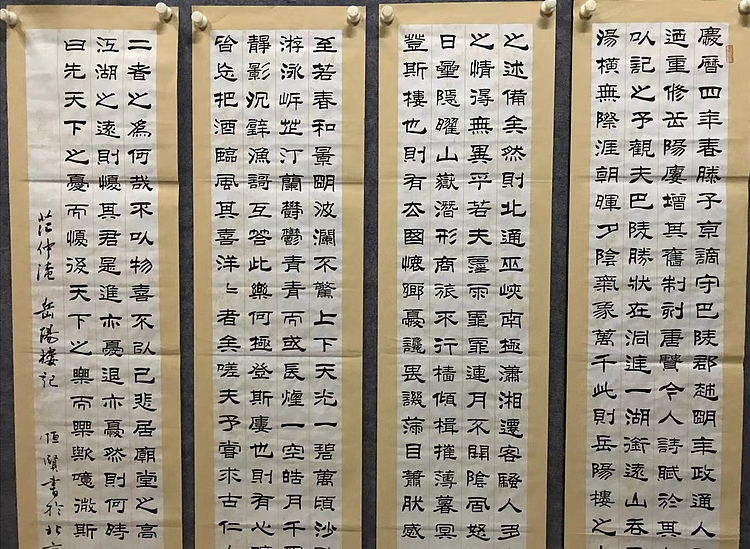 慶曆四年春滕子京謫守巴陵郡越明年政通人
迺重修岳陽樓增其舊制刻唐賢今人詩賦於其
以記之予觀夫巴陵勝狀在洞庭一湖銜遠山吞
湯橫無際涯朝暉夕陰氣象萬千此則岳陽樓之
之述備矣然則北通巫峽南極瀟湘遷客騷人多
之情得無異乎若夫霪雨霏霏連月不開陰風怒
日星隱曜山嶽潛形商旅不行檣傾楫摧薄暮冥
登斯樓也則有去國懷鄉憂讒畏譏滿目蕭然感
至若春和景明波瀾不驚上下天光一碧萬頃沙
游泳岸芷汀蘭鬱鬱青青而或長煙一空皓月千
靜影沉璧漁謌互答此樂何極登斯樓也則有心
皆忘把酒臨風其喜洋〻者矣嗟夫予嘗求古仁
二者之為何哉不以物喜不以己悲居廟堂之高
江湖之遠則憂其君是進亦憂退亦憂然則何時
曰先天下之憂而憂後天下之樂而樂歟噫微斯
范仲淹 岳陽樓記 恒賢書於北